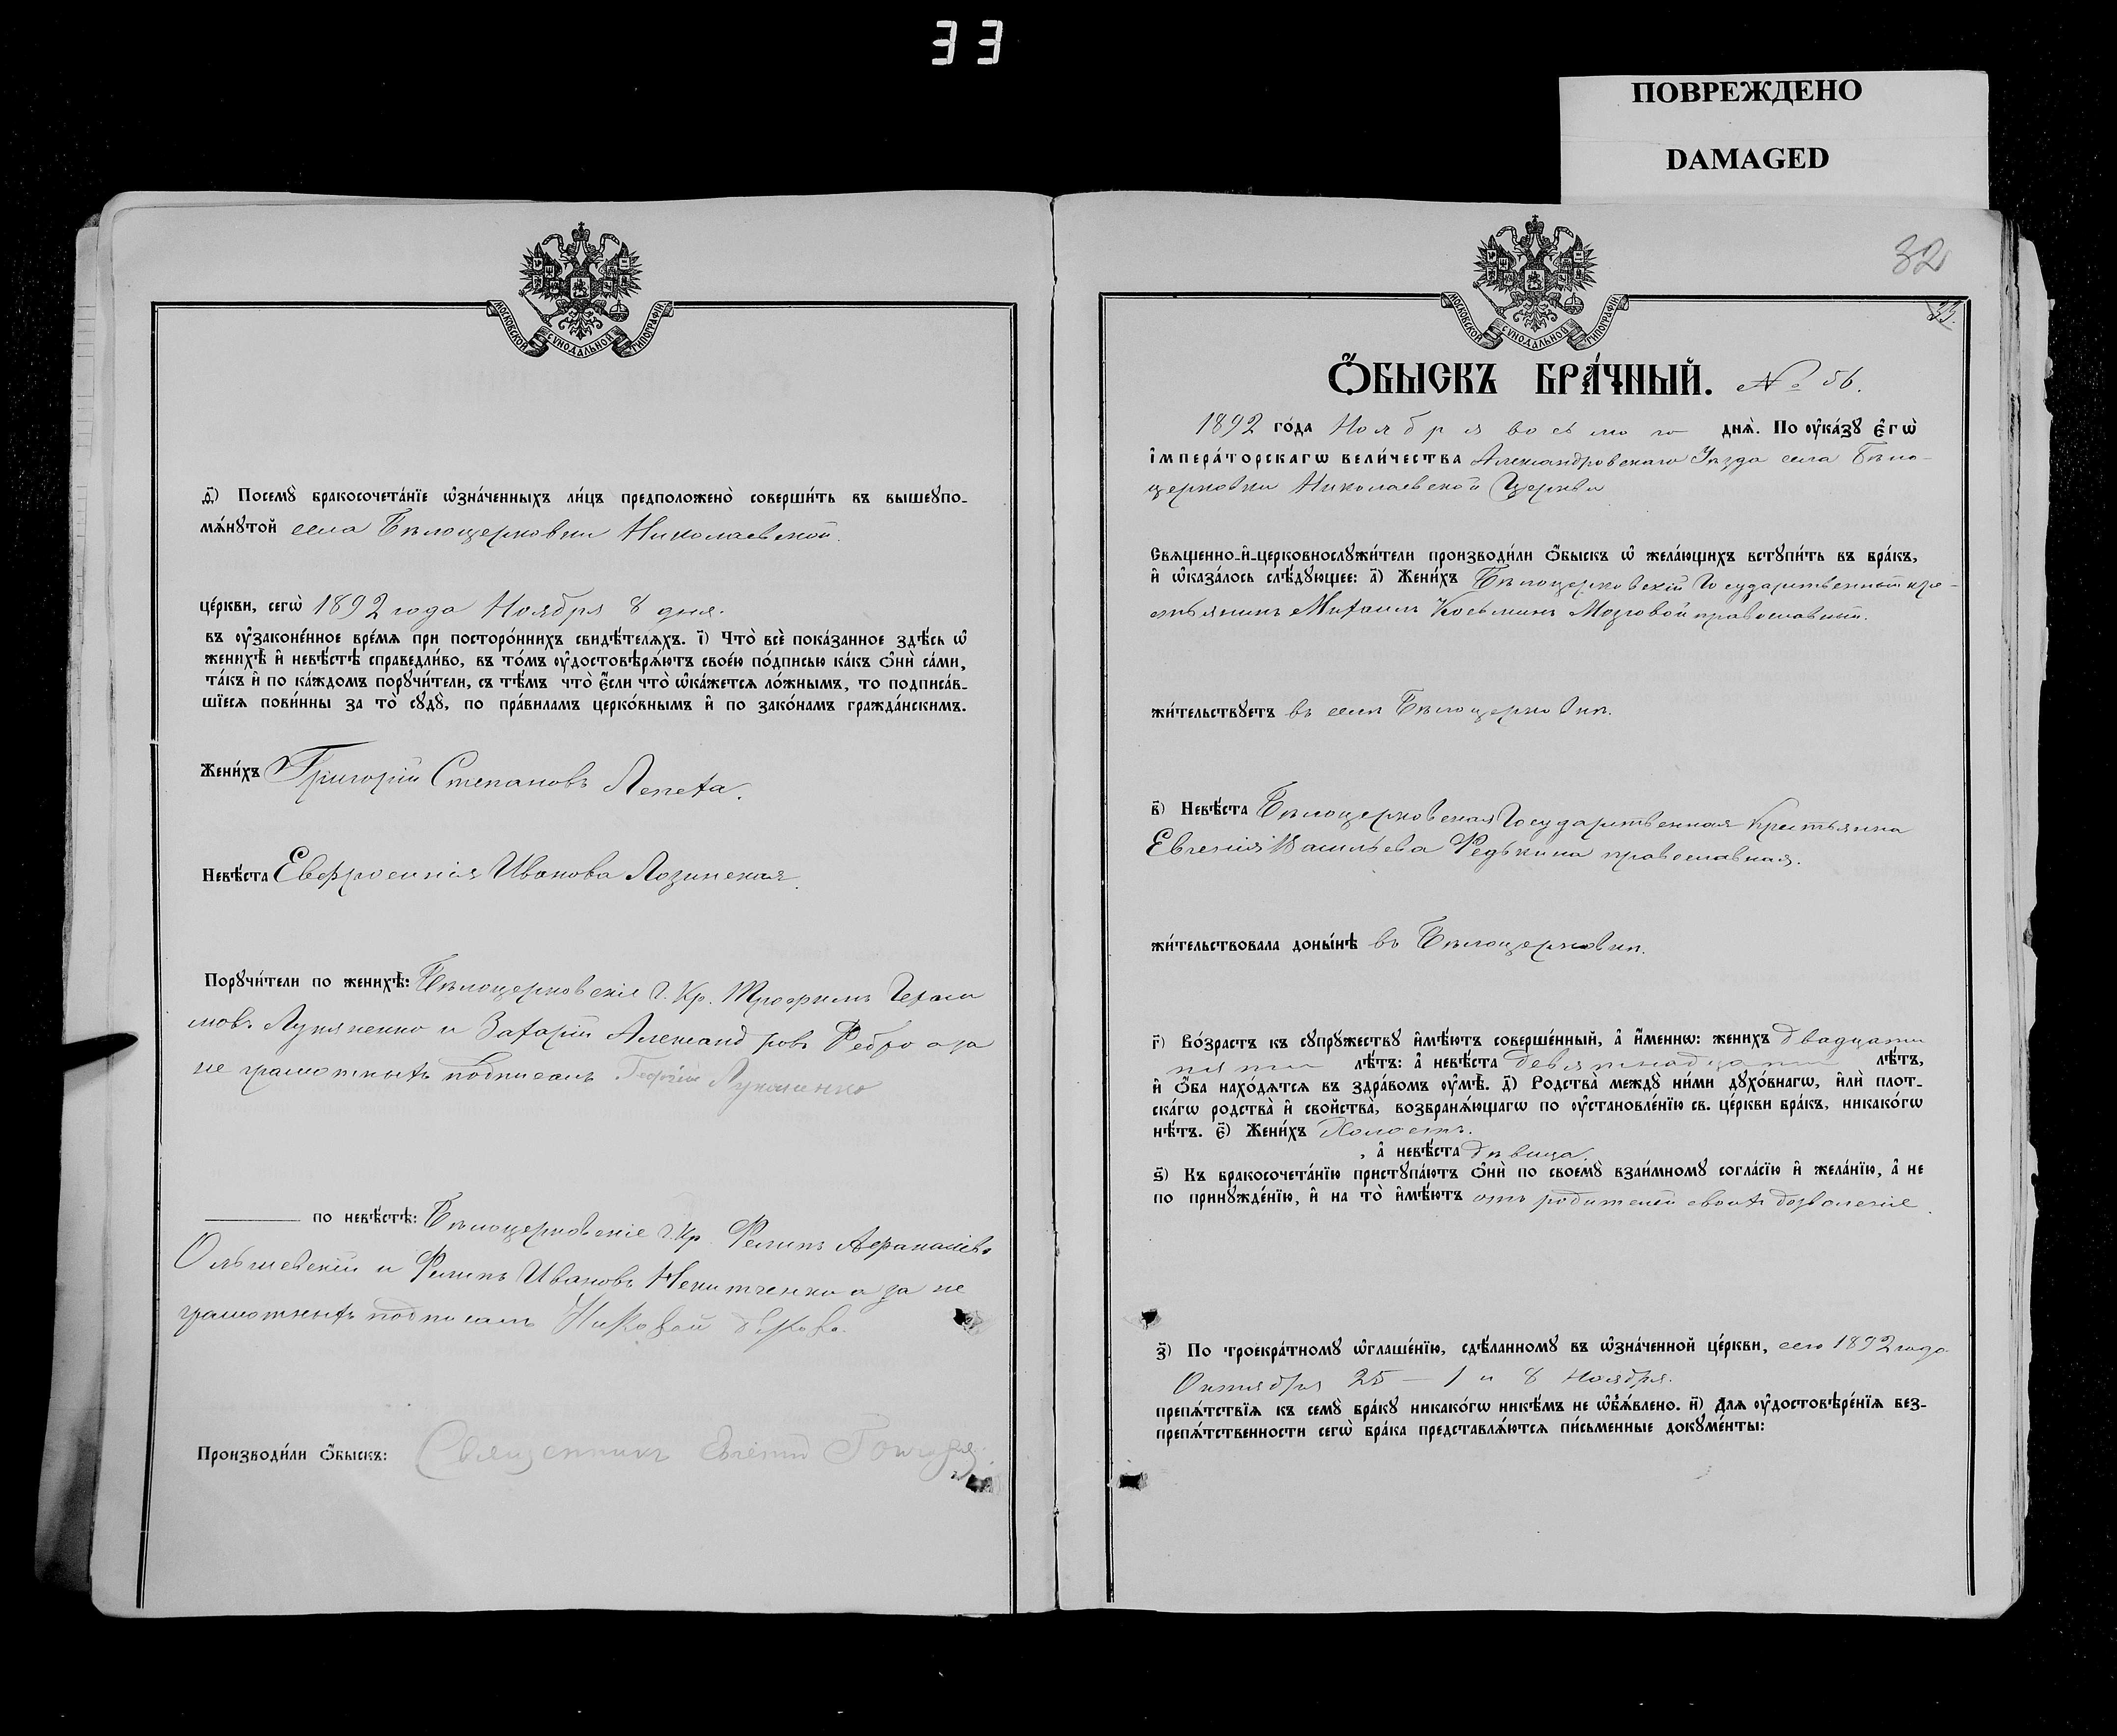 33
ПОВРЕЖДЕНО
DAMAGED
МОСКОВСКОЙ СѴНОДАЛЬНОЙ ТИПОГРАФІИ
ѳ҃) Посемꙋ̀ бракосочета́нїе ѡ҆зна́ченныхъ ли́цъ предположено̀ соверши́ть въ вышеꙋпо-
мѧ́нꙋтой села Бѣлоцерковки Николаевской.
це́ркви, сегѡ̀ 1892 года Ноября 8 дня.
въ ᲂу҆законе́нное вре́мѧ при посторо́ннихъ свидѣ́телѧхъ. і҃) Что̀ всѐ пока́занное здѣ́сь ѡ҆
женихѣ̀ и҆ невѣ́стѣ справедли́во, въ то́мъ ᲂу҆достовѣрѧ́ютъ свое́ю по́дписью ка́къ ѻ҆нѝ са́ми,
та́къ и҆ по ка́ждомъ порꙋчи́тели, съ тѣ́мъ что̀ є҆́сли что̀ ѡ҆ка́жетсѧ ло́жнымъ, то подписа́в-
шїесѧ пови́нны за то̀ сꙋдꙋ̀, по пра́виламъ церко́внымъ и҆ по зако́намъ гражда́нскимъ.
Жени́хъ Григорій Степановъ Лепеха.
Невѣ́ста Евфросинія Иванова Лозинская.
Порꙋчи́тели по женихѣ̀: Бѣлоцерковскіе Г. Кр. Трофимъ Гераси
мовъ Лукяненко и Захарій Александровъ Ребро а за
не грамотныхъ подписалъ Георгій Лукяненко
по невѣ́стѣ: Бѣлоцерковскіе Г. Кр. Филипъ Афанасіевъ
Ольшевскій и Филипъ Ивановъ Некитченко а за не
грамотныхъ подписалъ
Производи́ли ѻ҆́быскъ: Священникъ Евгеній
82
33.
МОСКОВСКОЙ СѴНОДАЛЬНОЙ ТИПОГРАФІИ
Ѻ҆́БЫСКЪ БРА́ЧНЫЙ. № 56.
1892 го́да Ноября восьмого днѧ̀. По ᲂу҆ка́зꙋ є҆гѡ̀
і҆мпера́торскагѡ вели́чества Александровскаго Уѣзда села Бѣло-
церковки Николаевской Церкви
Свѧщенно-и҆-церковнослꙋжи́тели производи́ли ѻ҆́быскъ ѡ҆ жела́ющихъ встꙋпи́ть въ бра́къ,
и҆ ѡ҆каза́лось слѣ́дꙋющее: а҃) Жени́хъ Бѣлоцерковскій Государственной кре-
стьянинъ Михаилъ Косьминъ Мозговой православный.
жи́тельствꙋетъ въ селѣ Бѣлоцерковкѣ.
в҃) Невѣ́ста Бѣлоцерковская Государственная Крестьянка
Евгенія Васильева Редькина православная.
жи́тельствовала доны́нѣ въ Бѣлоцерковкѣ.
г҃) Во́зрастъ къ сꙋпрꙋ́жествꙋ и҆мѣ́ютъ соверше́нный, а҆ и҆́меннѡ: женихъ двадцати
пяти лѣ́тъ: а҆ невѣ́ста девятнадцати лѣ́тъ,
и҆ ѻ҆́ба нахо́дѧтсѧ въ здра́вомъ ᲂу҆мѣ̀. д҃) Родства̀ междꙋ̀ ни́ми дꙋхо́внагѡ, и҆лѝ плот-
ска́гѡ родства̀ и҆ свойства̀, возбранѧ́ющагѡ по ᲂу҆становле́нїю св. це́ркви бра́къ, никако́гѡ
нѣ́тъ. є҃) Жени́хъ Холостъ.
, а҆ невѣ́ста дѣвица.
ѕ҃) Къ бракосочета́нїю пристꙋпа́ютъ ѻ҆нѝ по своемꙋ̀ взаи́мномꙋ согла́сїю и҆ жела́нїю, а҆ не
по принꙋжде́нїю, и҆ на то̀ и҆мѣ́ютъ отъ родителей своихъ дозволеніе.
з҃) По троекра́тномꙋ ѡ҆глаше́нїю, сдѣ́ланномꙋ въ ѡ҆зна́ченной це́ркви, сего 1892 года
Октября 25 — 1 и 8 Ноября.
препѧ́тствїѧ къ семꙋ̀ бра́кꙋ никако́гѡ никѣ́мъ не ѡ҆б̾ѧ́влено. и҃) Длѧ ᲂу҆достовѣре́нїѧ без-
препѧ́тственности сегѡ̀ бра́ка представлѧ́ютсѧ пи́сьменные докꙋме́нты: